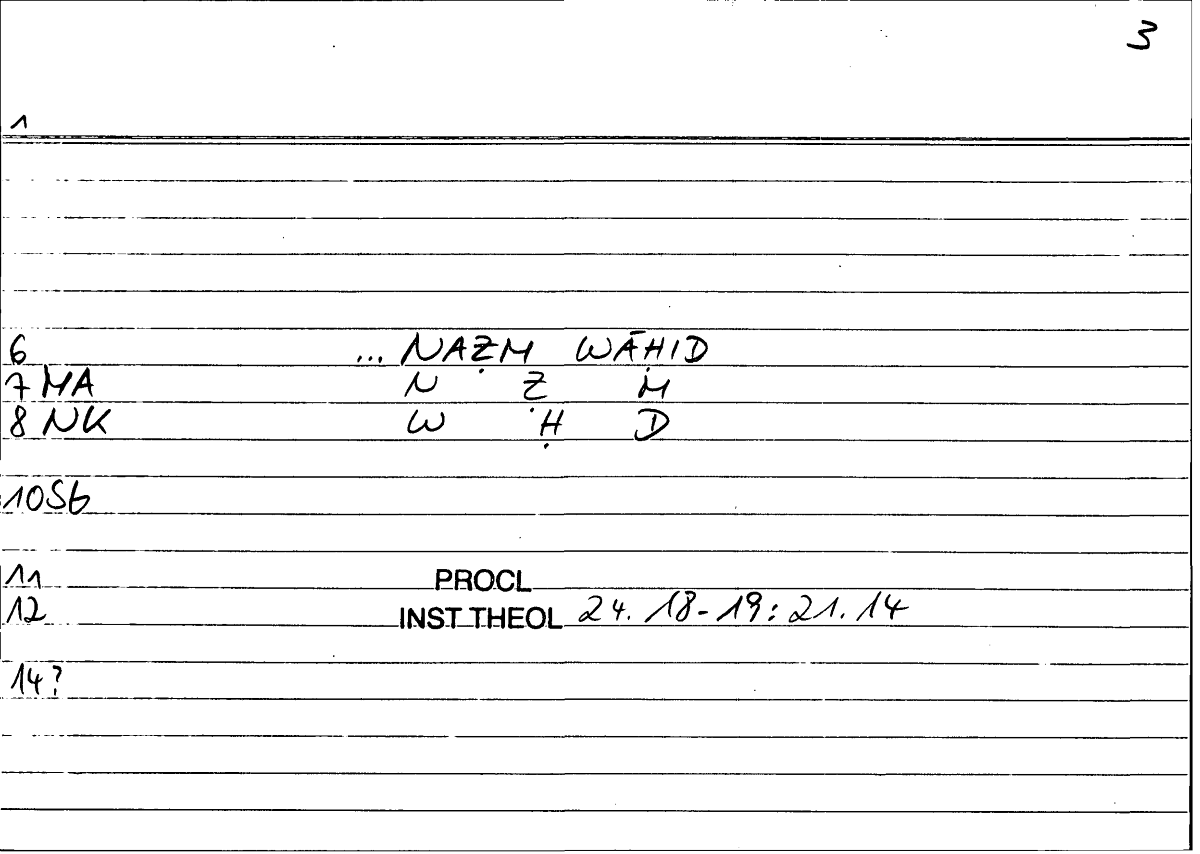 3
1
6 ... NAẒM WĀḤID
7 MA N Ẓ M
8 NK W Ḥ D
10Sb
11 PROCL
12 INST THEOL 24. 18-19: 21. 14
14?